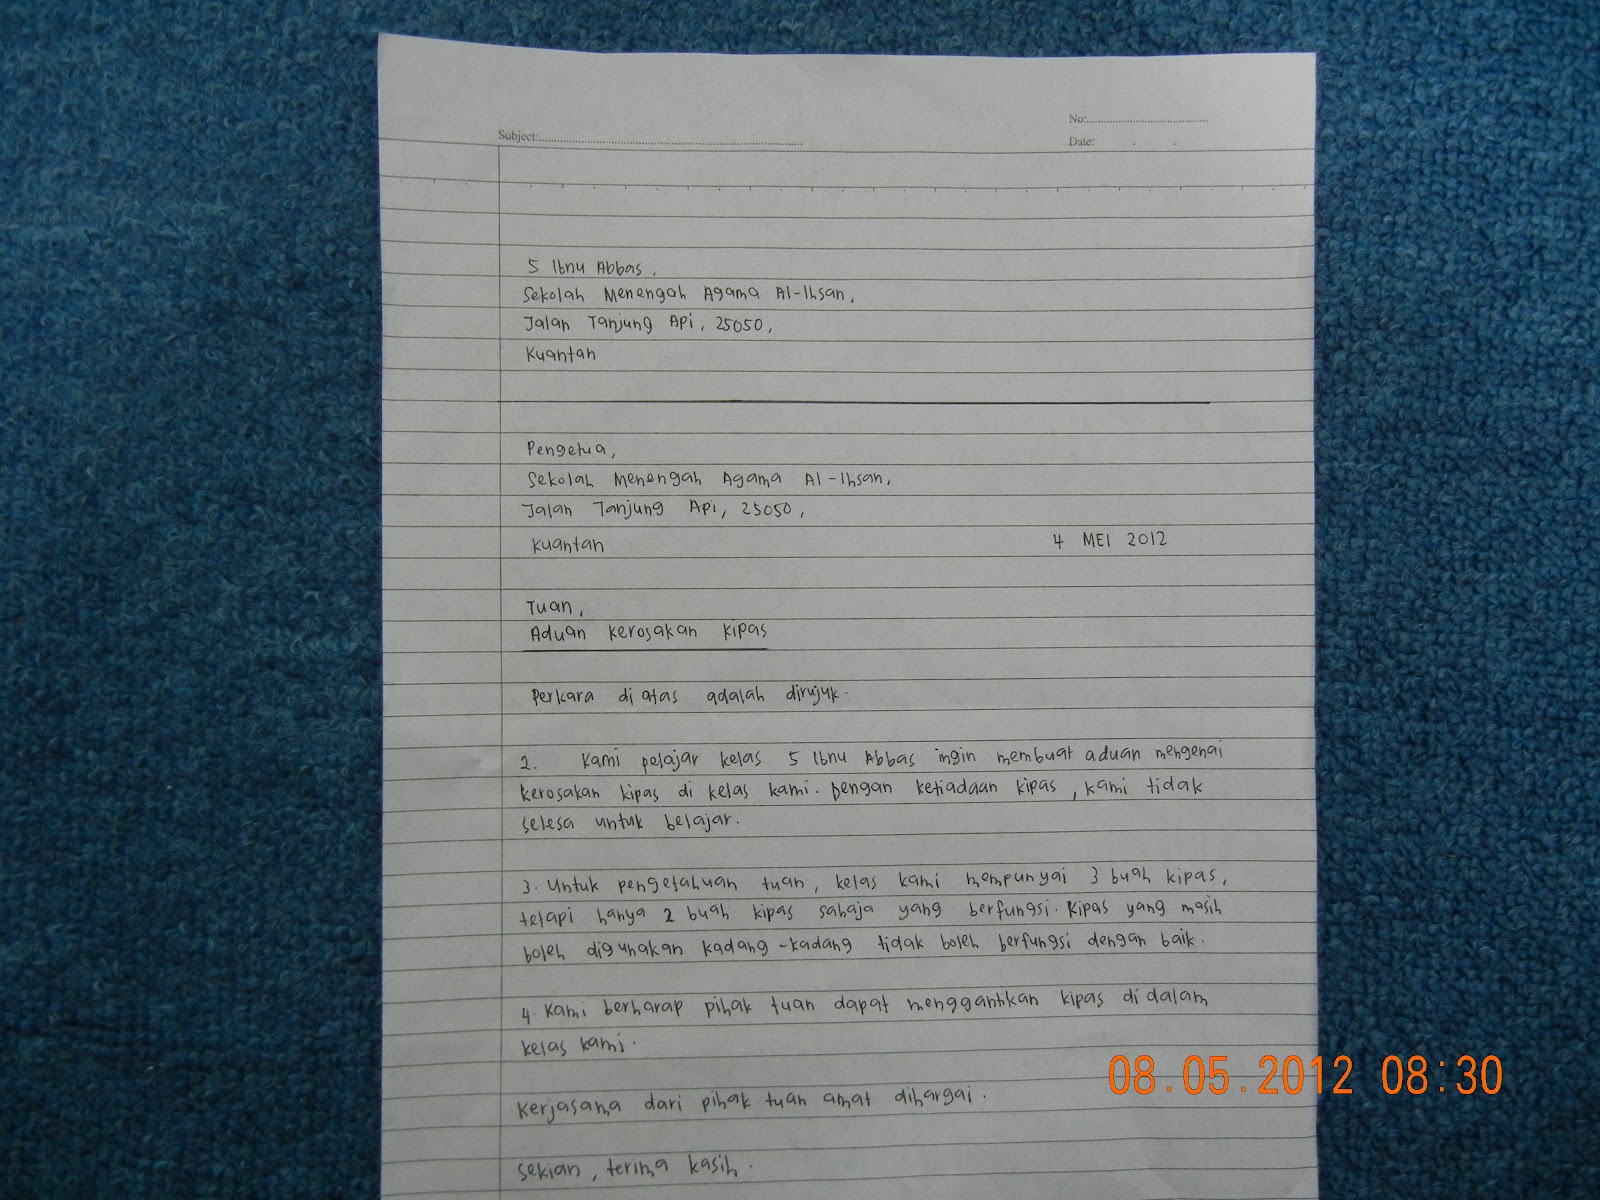 No:
Subject:
Date:
5 Ibnu Abbas,
Sekolah Menengah Agama Al-Ihsan,
Jalan Tanjung Api, 25050,
Kuantan
Pengetua,
Sekolah Menengah Agama Al-Ihsan,
Jalan Tanjung Api, 25050,
Kuantan 4 MEI 2012
Tuan,
Aduan kerosakan kipas
Perkara di atas adalah dirujuk.
2. Kami pelajar kelas 5 Ibnu Abbas ingin membuat aduan mengenai
kerosakan kipas di kelas kami. Dengan ketiadaan kipas, kami tidak
selesa untuk belajar.
3. Untuk pengetahuan tuan, kelas kami mempunyai 3 buah kipas,
tetapi hanya 2 buah kipas sahaja yang berfungsi. Kipas yang masih
boleh digunakan kadang-kadang tidak boleh berfungsi dengan baik.
4. Kami berharap pihak tuan dapat menggantikan kipas di dalam
kelas kami.
Kerjasama dari pihak tuan amat dihargai.
Sekian, terima kasih.
08.05.2012 08:30